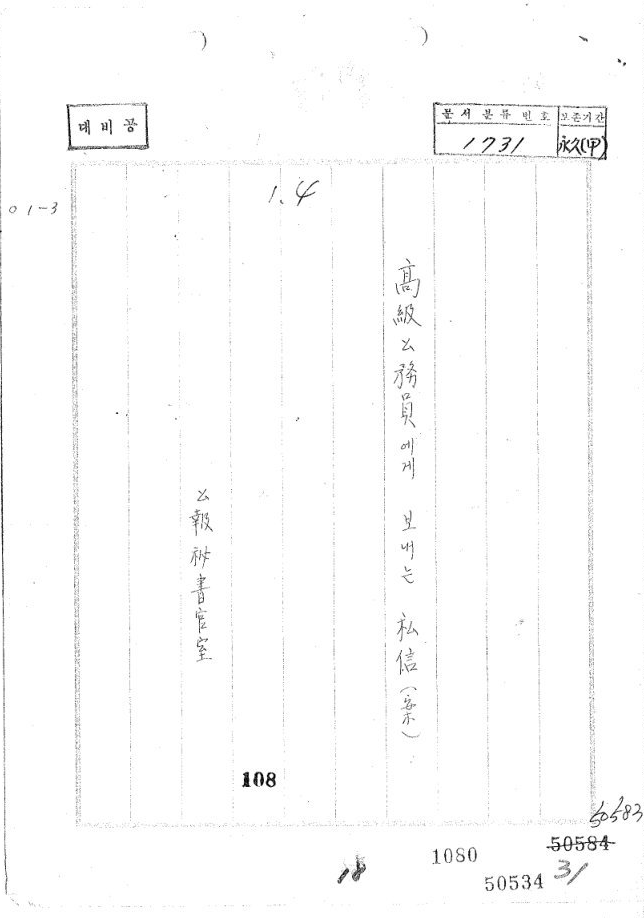 대비공
문서분류번호 보존기간
1731 永久(甲)
01-3
1.4
高級公務員에게 보내는 私信(案)
公報秘書官室
108
50583
50584
1080
18
50534
31